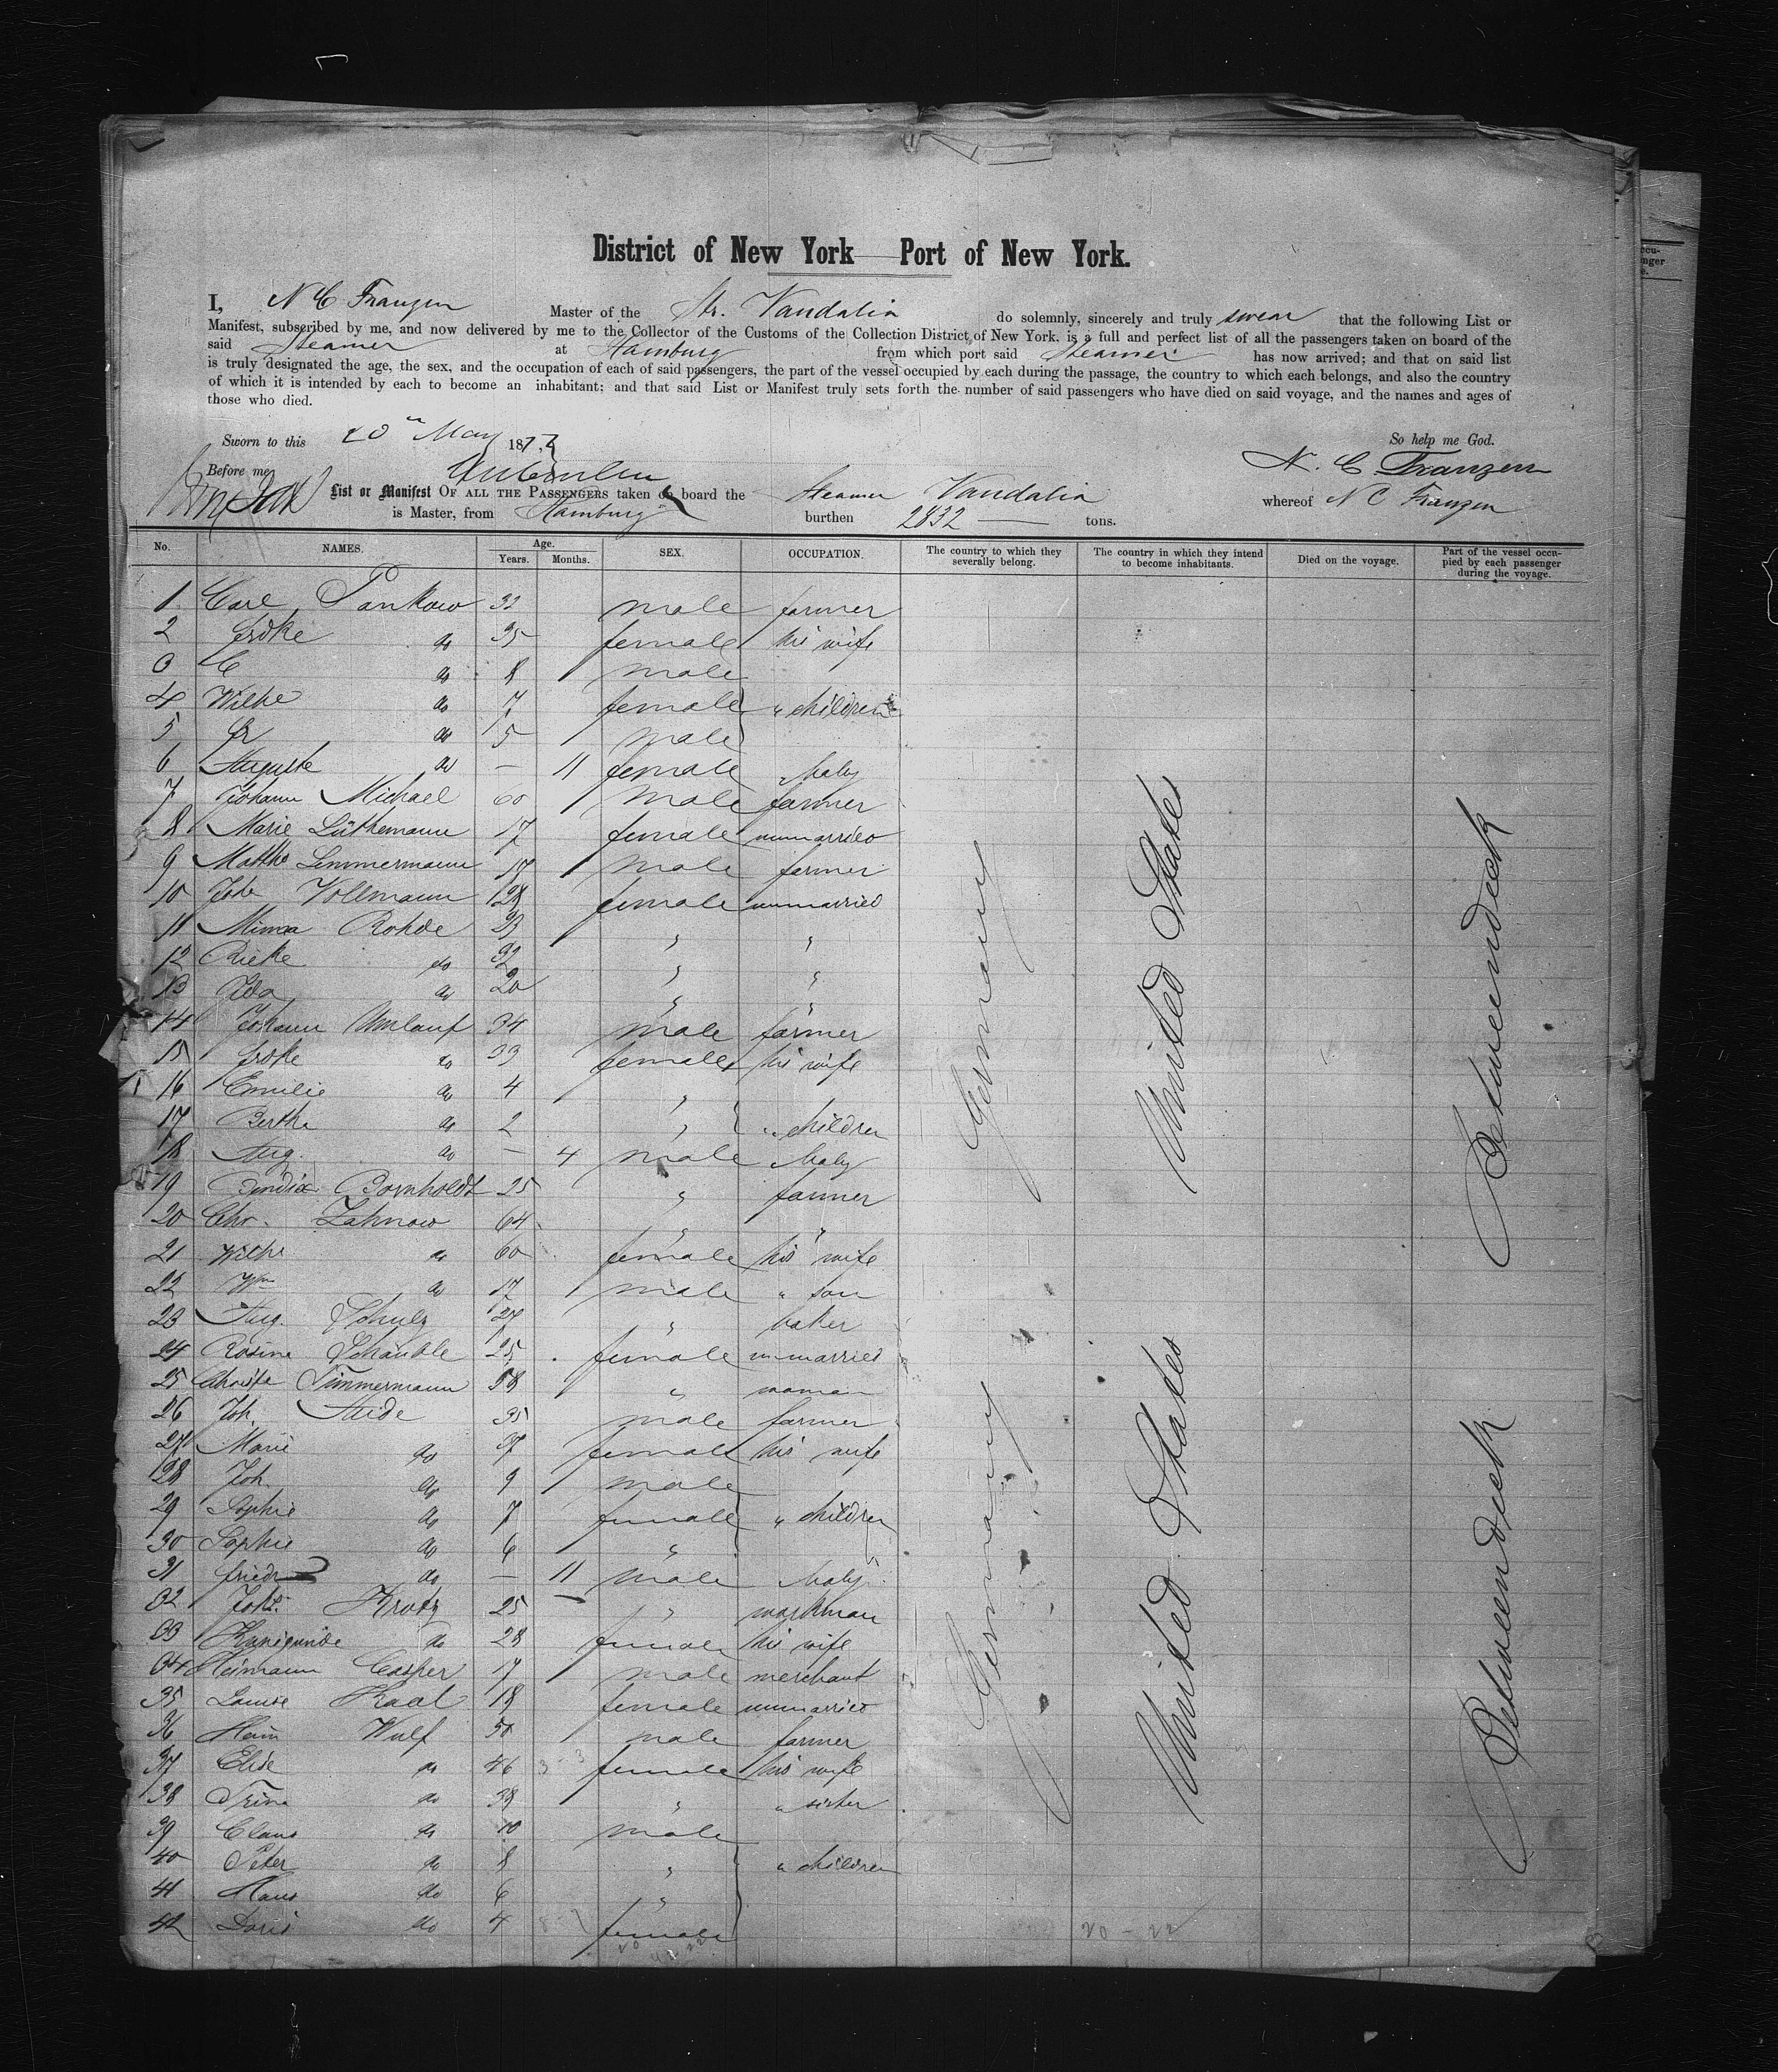 District of New York — Port of New York.
I, N C Franzen Master of the Str. Vandalia do solemnly, sincerely and truly swear that the following List or
Manifest, subscribed by me, and now delivered by me to the Collector of the Customs of the Collection District of New York, is a full and perfect list of all the passengers taken on board of the
said Steamer at Hamburg from which port said Steamer has now arrived; and that on said list
is truly designated the age, the sex, and the occupation of each of said passengers, the part of the vessel occupied by each during the passage, the country to which each belongs, and also the country
of which it is intended by each to become an inhabitant; and that said List or Manifest truly sets forth the number of said passengers who have died on said voyage, and the names and ages of
those who died.
Sworn to this 20 May 187 So help me God.
Before me N. C. Franzen
List or Manifest OF ALL THE PASSENGERS taken on board the Steamer Vandalia whereof N C Franzen
is Master, from Hamburg burthen 2832 — tons.
No. NAMES. Age. Years. Months. SEX. OCCUPATION. The country to which they severally belong. The country in which they intend to become inhabitants. Died on the voyage. Part of the vessel occupied by each passenger during the voyage.
1 Carl Pankow 33 male farmer
2 Frdke do 35 female his wife
3 C do 8 male
4 Wilhe do 7 female " children
5 Fr do 5 male
6 Auguste do — 11 female baby
7 Johann Michael 60 male farmer
8 Marie Lüthemann 17 female unmarried
9 Matths Limmermann 17 male farmer
10 Johe Vollmann 28 female unmarried
11 Minna Rohde 23 " "
12 Rieke do 32 " "
13 Ida do 20 " "
14 Johann Umlauf 34 male farmer
15 Frdke do 33 female his wife
16 Emilie do 4 "
17 Bertha do 2 " " children
18 Aug. do — 4 male baby
19 Bendix Bornholdt 25 " farmer
20 Chr. Zahnow 64 " "
21 Wilhe do 60 female his wife
22 Wm do 17 male " son
23 Aug. Schulz 27 " baker
24 Rosine Schäuble 25 female unmarried
25 Christe Timmermann 58 " woman
26 Joh. Stide 35 male farmer
27 Marie do 37 female his wife
28 Joh. do 9 male
29 Sophie do 7 female " children
30 Sophie do 6 "
31 Friedr do — 11 male baby
32 Joh. Krotz 25 — " workman
33 Kunigunde do 28 female his wife
34 Heimann Casper 17 male merchant
35 Louise Kaal 18 female unmarried
36 Hein Wulf 50 male farmer
37 Elise do 46 female his wife
38 Trina do 38 " " sister
39 Claus do 10 male
40 Peter do 8 " " children
41 Hans do 6 "
42 Doris do 4 female
Germany
United States
Betweendeck
Germany
United States
Betweendeck
20 - 22